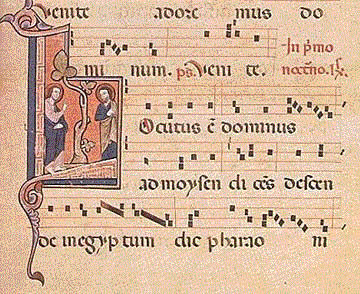 Venite adore mus do
mi num. ps. Veni te. In p̄mo
noct̄no. ℟.
Locutus ē dominus
ad moysen di cēs descen
de in egyp tum dic pharao ni